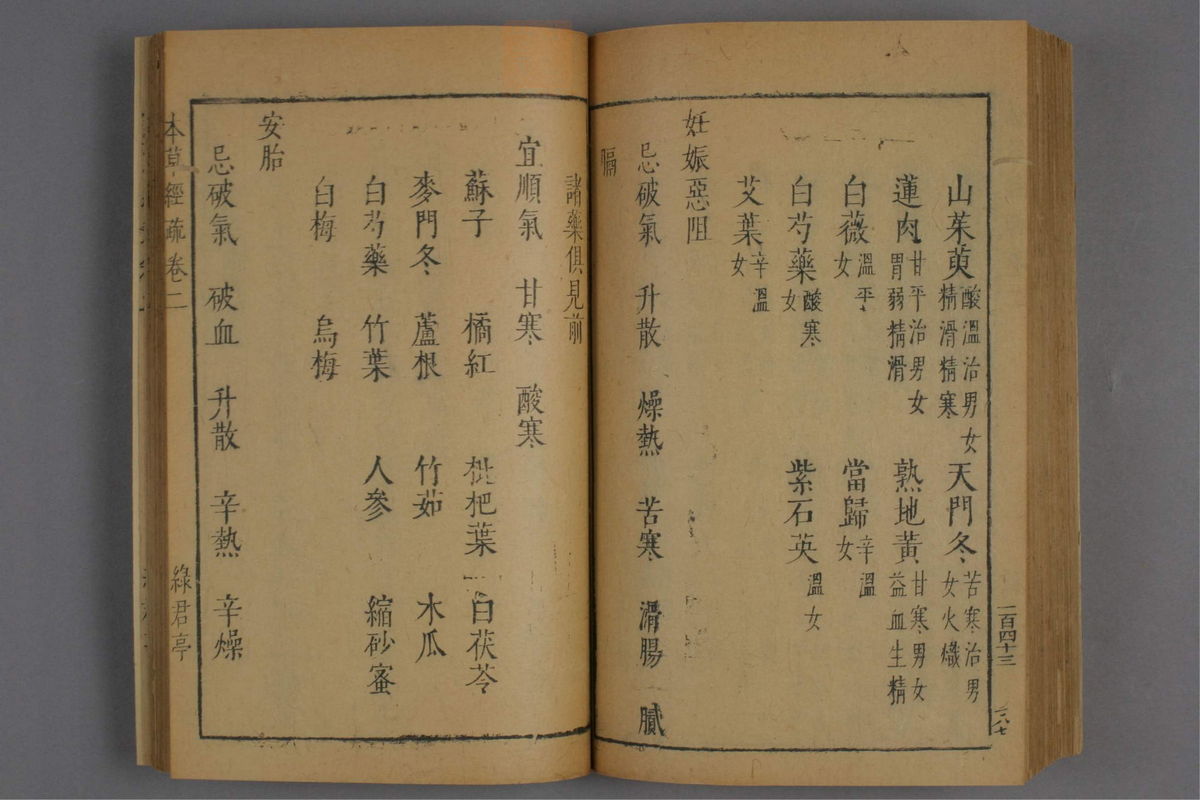 山茱萸酸溫治男女精滑精寒 天門冬苦寒治男女火熾
蓮肉甘平治男女胃弱精滑 熟地黃甘寒男女益血生精
白薇溫平女 當歸辛溫女
白芍藥酸寒女 紫石英溫女
艾葉辛溫女
妊娠惡阻
忌破氣 升散 燥熱 苦寒 滑腸 膩
膈
諸藥俱見前
宜順氣 甘寒 酸寒
蘇子 橘紅 枇杷葉 白茯苓
麥門冬 蘆根 竹茹 木瓜
白芍藥 竹葉 人參 縮砂蜜
白梅 烏梅
安胎
忌破氣 破血 升散 辛熱 辛燥
本草經疏卷二 綠君亭
一百四十三